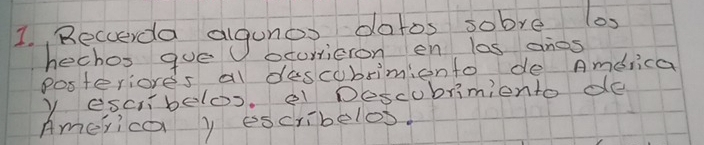 1. Recuerda algunos datos sobre los
hechos que ocurrieron en los años
posteriores al descubrimiento de América
y escribelos. el Descubrimiento de
América y escribelos.